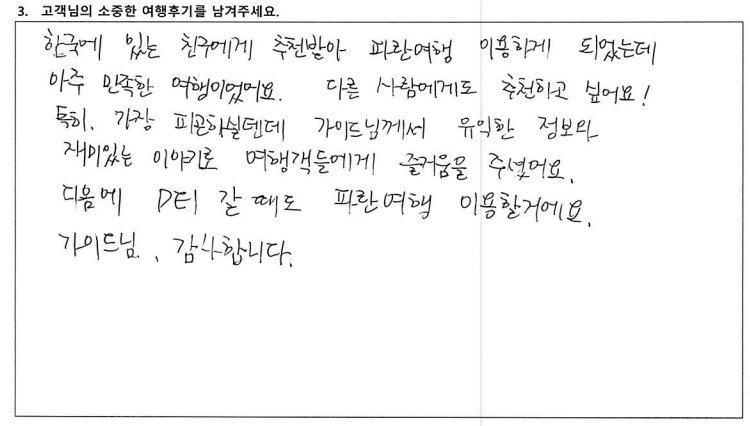 3. 고객님의 소중한 여행후기를 남겨주세요.
한국에 있는 친구에게 추천받아 파란여행 이용하게 되었는데
아주 만족한 여행이었어요. 다른 사람에게도 추천하고 싶어요!
특히, 가장 피곤하실텐데 가이드님께서 유익한 정보와
재미있는 이야기로 여행객들에게 즐거움을 주셨어요.
다음에 갈 때도 파란여행 이용할거에요.
가이드님, 감사합니다.